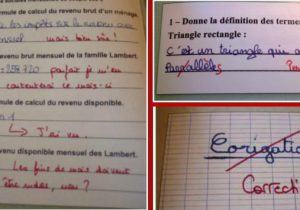 mule de calcul du revenu brut d'un ménage.
les impôts sur le revenu
mensuel mais bien sûr !
evenu brut mensuel de la famille Lambert.
= 258 720 parfait je m'en
contenterai ce mois-ci
mule de calcul du revenu disponible.
↳ J'ai vu.
venu disponible mensuel des Lambert.
Les fins de mois doivent
être rudes, non ?
1 – Donne la définition des terme
Triangle rectangle :
C'est un triangle qui a
Parallèles
Corigation
Correcti